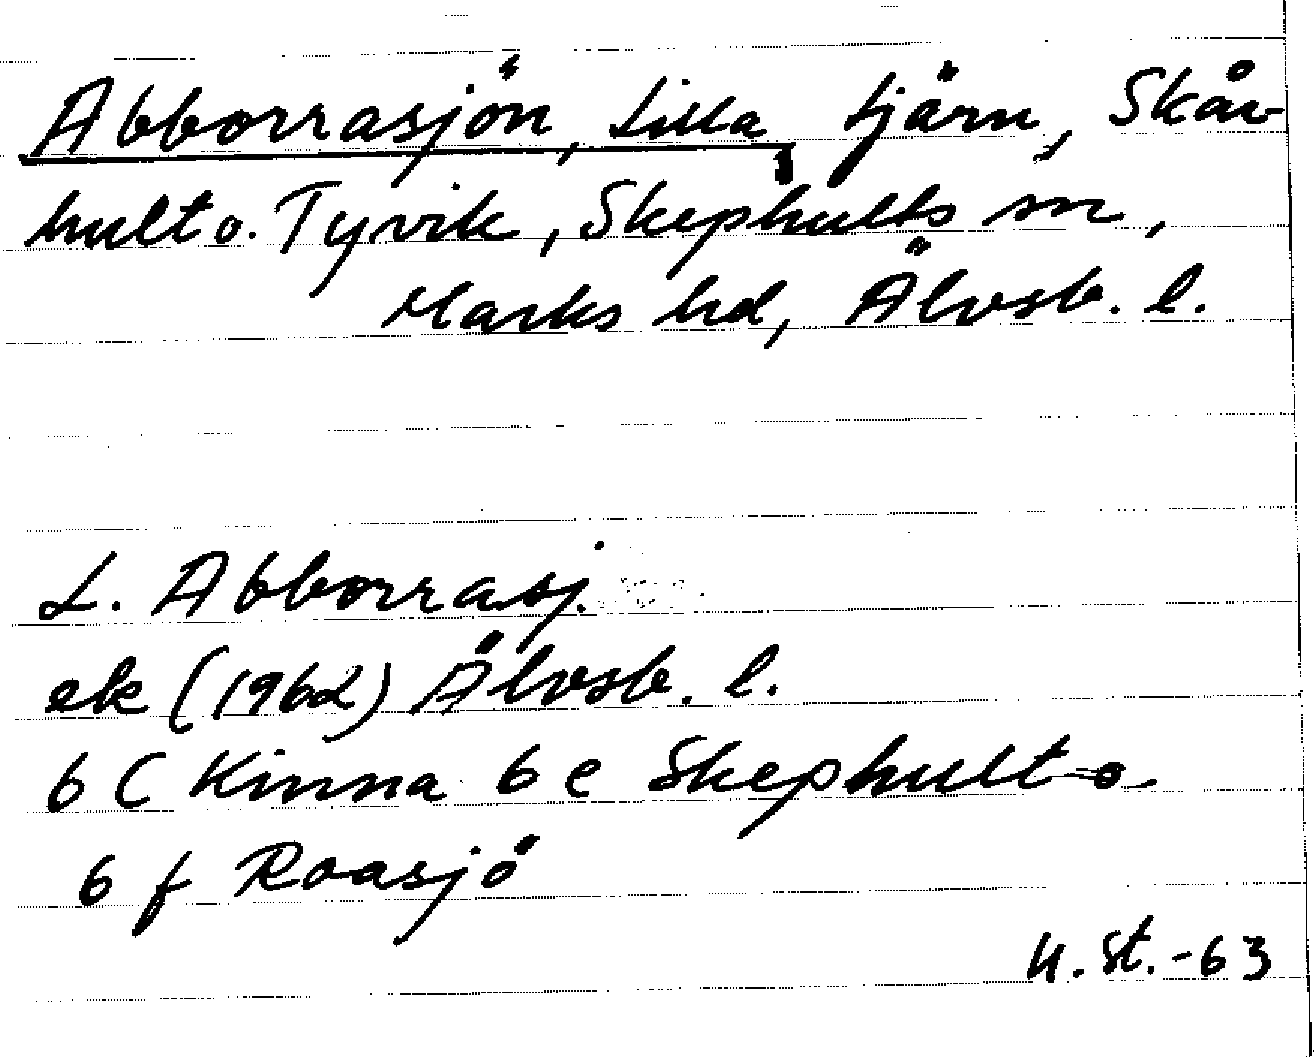 Abborrasjön, Lilla tjärn, Skåv-
hult o. Tyvik, Skephults sn,
Marks hd, Älvsb. l.
L. Abborrasj.
ek (1962) Älvsb. l.
6 C Kinna 6 e Skephult o
6 f Roasjö
U. St. -63